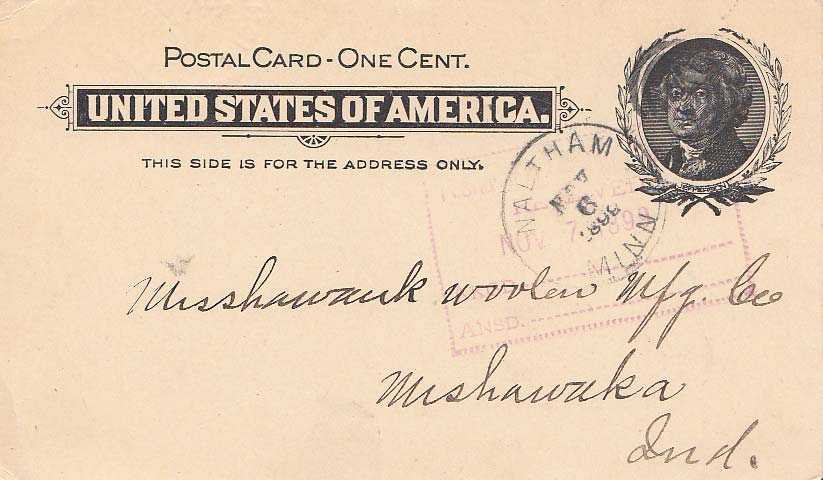 POSTAL CARD - ONE CENT.
UNITED STATES OF AMERICA.
THIS SIDE IS FOR THE ADDRESS ONLY.
JEFFERSON
WALTHAM
NOV
6
MINN
NOV 7 1899
ANSD.
Misshawauk Woolen Mfg. Co
Mishawaka
Ind.